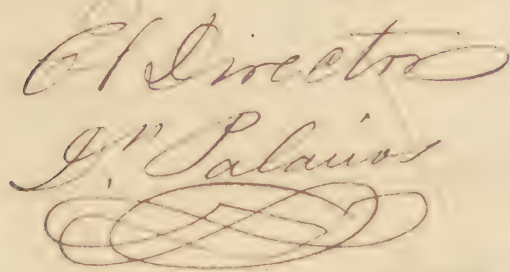 El Director
J.n Palacios